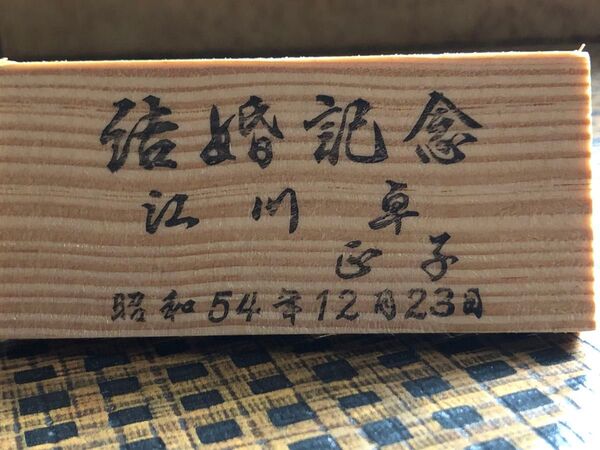 結婚記念
江川卓
正子
昭和54年12月23日